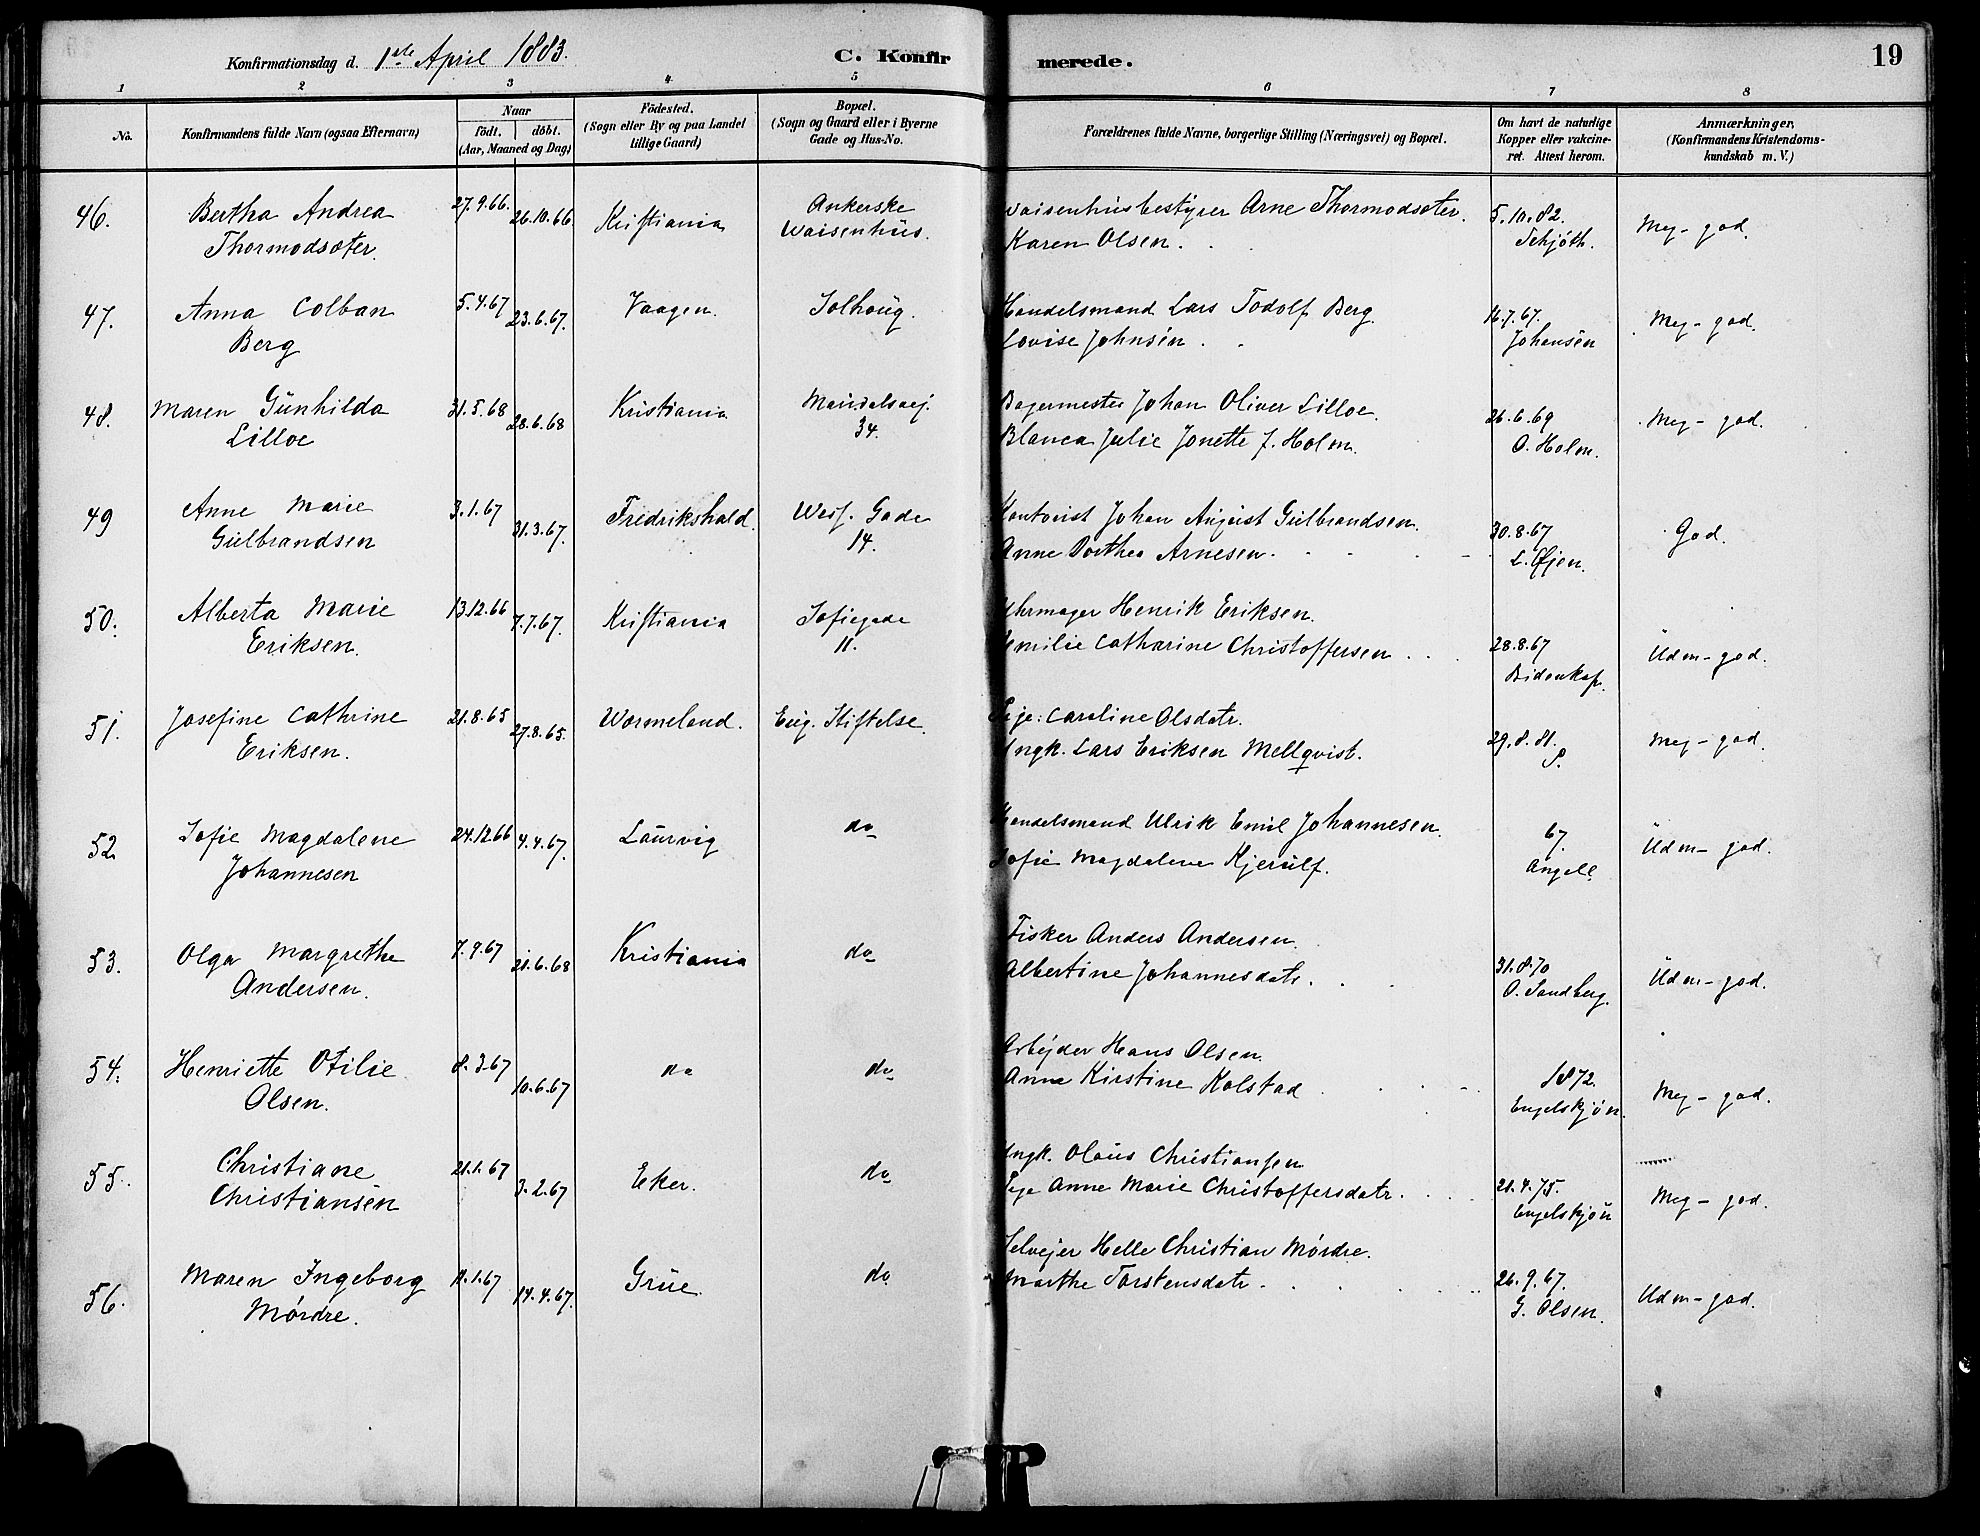 Konfirmationsdag d. 1ste April 1883. C. Konfirmerede. 19
1 2 3 4 5 6 7 8
No. Konfirmandens fulde Navn (ogsaa Efternavn) Naar födt. döbt. (Aar, Maaned og Dag) Födested. (Sogn eller By og paa Landet tillige Gaard) Bopæl. (Sogn og Gaard eller i Byerne Gade og Hus-No. Forældrenes fulde Navne, borgerlige Stilling (Næringsvei) og Bopæl. Om havt de naturlige Kopper eller vakcineret. Attest herom. Anmærkninger, (Konfirmandens Kristendomskundskab m. V.)
46. Bertha Andrea 27.9.66. 26.10.66 Kristiania Ankerske Waisenhusbestyrer Arne Thormodsæter. 5.10.82. Meg-god.
Thormodsæter. Waisenhus. Karen Olsen. Schjöth.
47. Anna Colban 5.4.67 23.6.67. Vaagen. Solhoug. Handelsmand Lars Todolf Berg. 16.7.67. Meg-god.
Berg Lovise Johnsen. Johansen
48. Maren Gunhilda 31.5.68 28.6.68 Kristiania Bagermester Johan Oliver Lilloe. 26.6.69 Meg-god.
Lilloe 34. Blanca Julie Jonette f. Holm. O. Holm.
49 Anne Marie 3.1.67 31.3.67. Fredrikshald. Gade Kontorist Johan August Gulbrandsen. 30.8.67 God.
Gulbrandsen 14. Anne Dorthea Arnesen. L. Øjen.
50. Alberta Marie 13.12.66 7.7.67. Kristiania Sofiegade Uhrmager Henrik Eriksen. 28.8.67 Udm-god.
Eriksen. 11. Emilie Catharine Christoffersen Bidenkap.
51. Josefine Cathrine 21.8.65 27.8.65. Wærmeland. Eug. Stiftelse. Pige: Caroline Olsdatr. 29.8.81. Meg-god.
Eriksen. Ungk. Lars Eriksen Mellqvist. S.
52. Sofie Magdalene 24.12.66 4.4.67. Laurvig do Handelsmand Ulrik Emil Johannesen. 67. Udm-god.
Johannesen Sofie Magdalene Kjerulf. Angell.
53. Olga Margrethe 7.9.67 21.6.68 Kristiania do Fisker Anders Andersen. 31.8.70 Udm-god.
Andersen. Albertine Johannesdatr. O. Sandberg.
54. Henriette Otilie 8.3.67 10.6.67 do do Arbejder Hans Olsen. 1872. Meg-god.
Olsen. Anne Kirstine Kolstad Engelskjøn.
55. Christiane 21.1.67 3.2.67 Eker. do Ungk. Olaus Christiansen 21.4.75. Meg-god.
Christiansen Pige Anne Marie Christoffersdatr. Engelskjøn
56. Maren Ingeborg 11.1.67 14.4.67. Grue. do Selvejer Helle Christian Mørdre. 26.9.67. Udm-god.
Mørdre. Marthe Torstensdatr. G. Olsen.